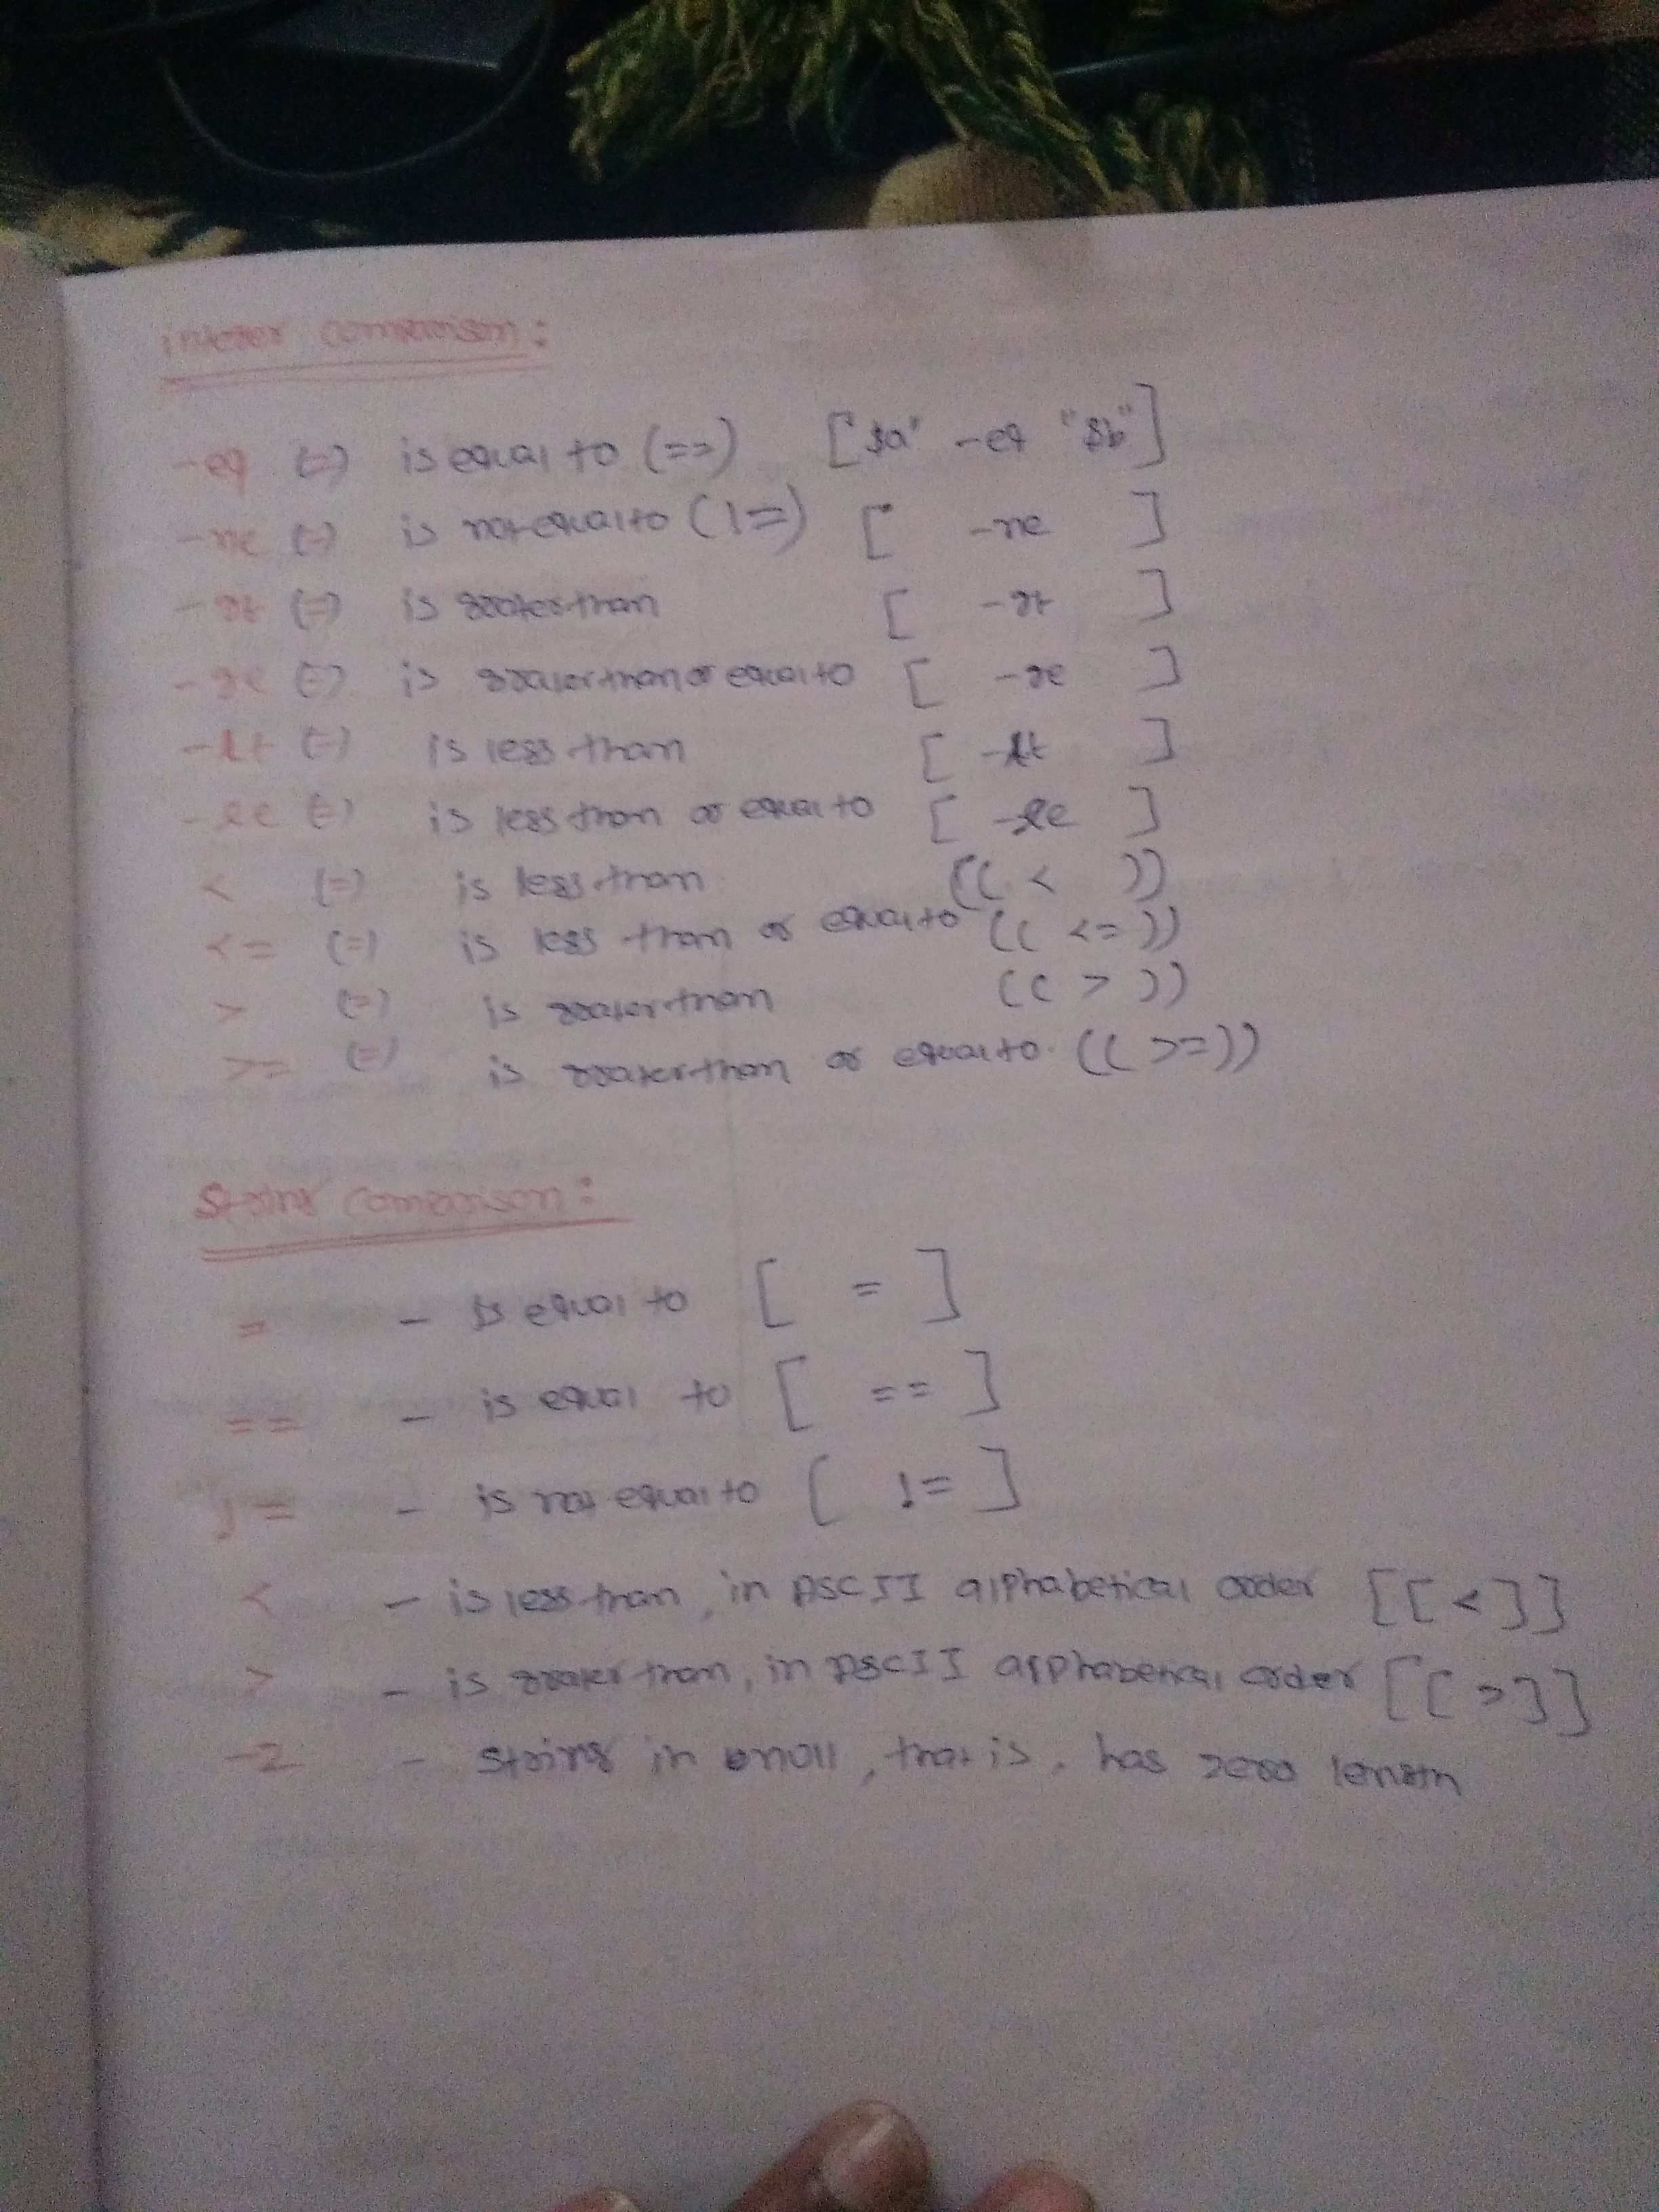 integer comparison:
-eq (=) is equal to (==) ["$a" -eq "$b"]
-ne (=) is not equal to (!=) [ -ne ]
-gt (=) is greater than [ -gt ]
-ge (=) is greater than or equal to [ -ge ]
-lt (=) is less than [ -lt ]
-le (=) is less than or equal to [ -le ]
< (=) is less than (( < ))
<= (=) is less than or equal to (( <= ))
> (=) is greater than (( > ))
>= (=) is greater than or equal to (( >= ))
String comparison:
= - is equal to [ = ]
== - is equal to [ == ]
!= - is not equal to [ != ]
< - is less than, in ASCII alphabetical order [[ < ]]
> - is greater than, in ASCII alphabetical order [[ > ]]
-z - string in null, that is, has zero length